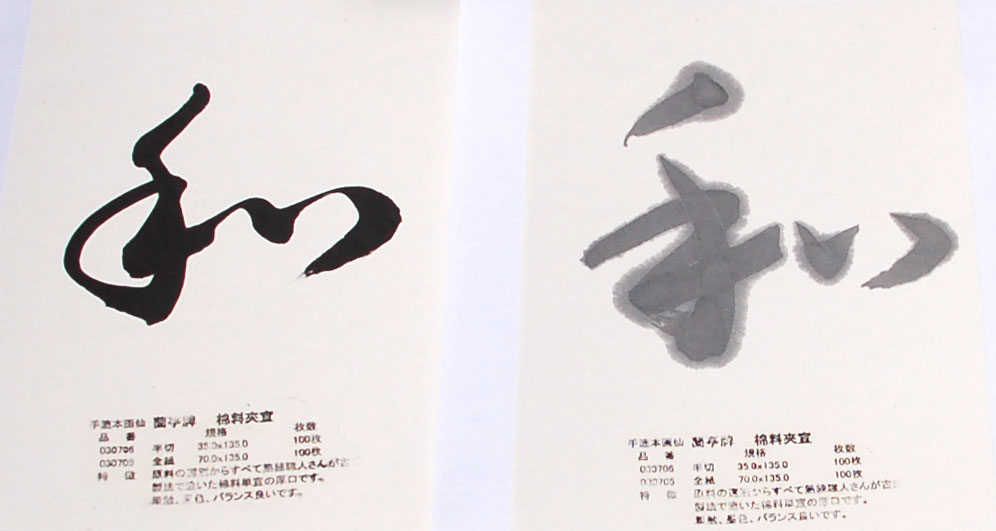 和
手漉本画仙 蘭亭牌 棉料夾宣
品番 規格 枚数
030706 半切 35.0x135.0 100枚
030705 全紙 70.0x135.0 100枚
特徴 原料の選別からすべて熟練職人さんが古
製法で漉いた棉料単宣の厚口です。
墨色、バランス良いです。
和
手漉本画仙 蘭亭牌 棉料夾宣
品番 規格 枚数
030706 半切 35.0x135.0 100枚
030705 全紙 70.0x135.0 100枚
特徴 原料の選別からすべて熟練職人さんが古
製法で漉いた棉料単宣の厚口です。
墨色、バランス良いです。